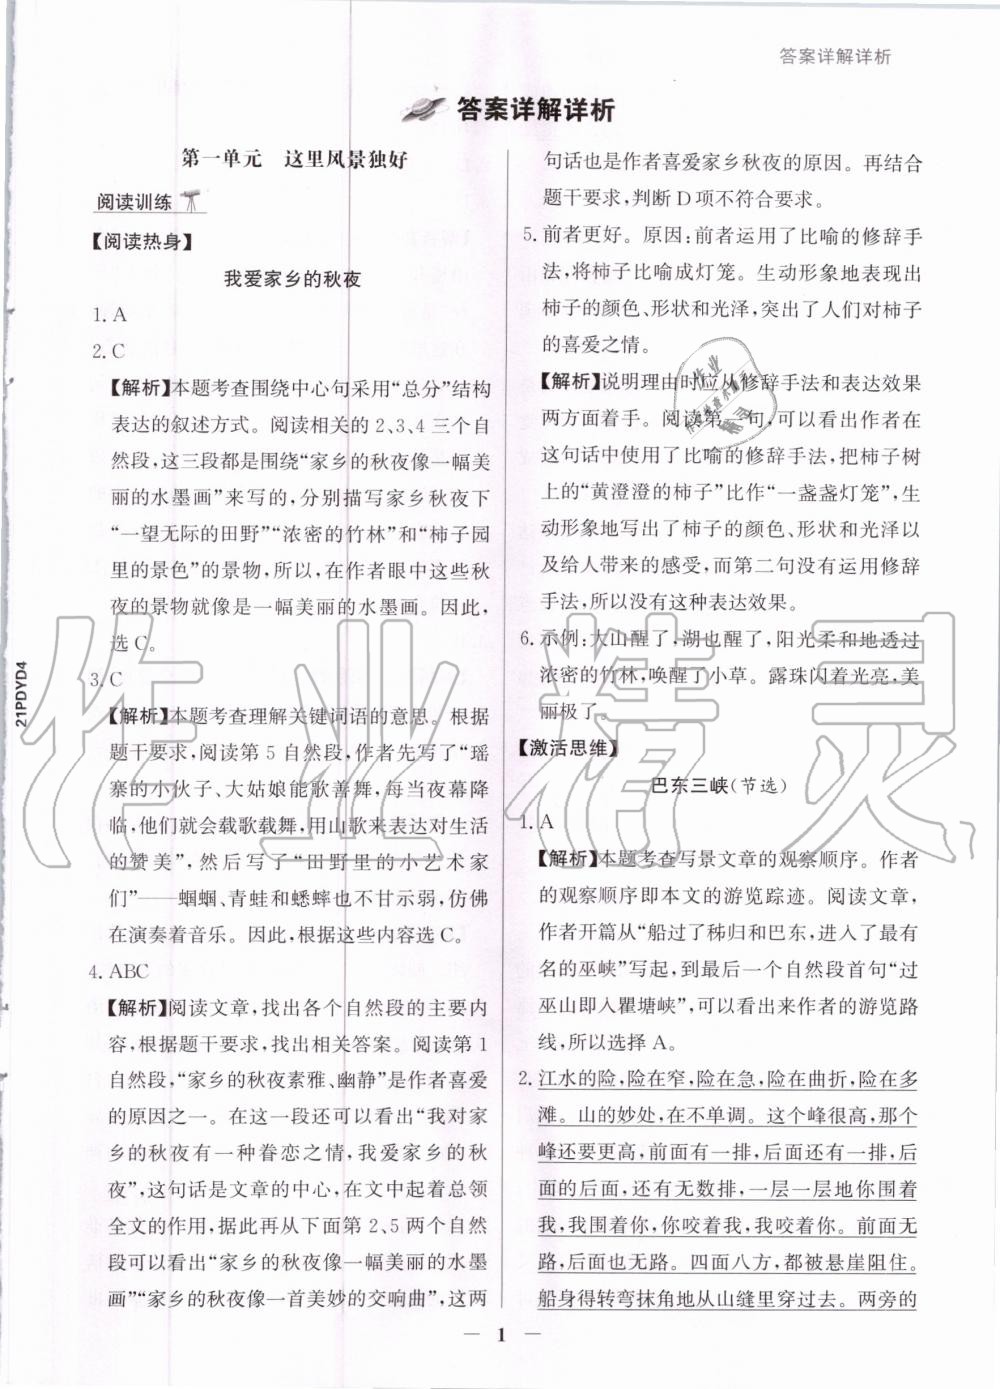 答案详解详析
答案详解详析
第一单元　这里风景独好
阅读训练
【阅读热身】
我爱家乡的秋夜
1. A
2. C
【解析】本题考查围绕中心句采用“总分”结构
表达的叙述方式。阅读相关的 2、3、4 三个自
然段，这三段都是围绕“家乡的秋夜像一幅美
丽的水墨画”来写的，分别描写家乡秋夜下
“一望无际的田野”“浓密的竹林”和“柿子园
里的景色”的景物，所以，在作者眼中这些秋
夜的景物就像是一幅美丽的水墨画。因此，
选 C。
3. C
【解析】本题考查理解关键词语的意思。根据
题干要求，阅读第 5 自然段，作者先写了“瑶
寨的小伙子、大姑娘能歌善舞，每当夜幕降
临，他们就会载歌载舞，用山歌来表达对生活
的赞美”，然后写了“田野里的小艺术家
们”——蝈蝈、青蛙和蟋蟀也不甘示弱，仿佛
在演奏着音乐。因此，根据这些内容选 C。
4. ABC
【解析】阅读文章，找出各个自然段的主要内
容，根据题干要求，找出相关答案。阅读第 1
自然段，“家乡的秋夜素雅、幽静”是作者喜爱
的原因之一。在这一段还可以看出“我对家
乡的秋夜有一种眷恋之情，我爱家乡的秋
夜”，这句话是文章的中心，在文中起着总领
全文的作用，据此再从下面第 2、5 两个自然
段可以看出“家乡的秋夜像一幅美丽的水墨
画”“家乡的秋夜像一首美妙的交响曲”，这两
句话也是作者喜爱家乡秋夜的原因。再结合
题干要求，判断 D 项不符合要求。
5. 前者更好。原因：前者运用了比喻的修辞手
法，将柿子比喻成灯笼。生动形象地表现出
柿子的颜色、形状和光泽，突出了人们对柿子
的喜爱之情。
【解析】说明理由时应从修辞手法和表达效果
两方面着手。阅读第一句，可以看出作者在
这句话中使用了比喻的修辞手法，把柿子树
上的“黄澄澄的柿子”比作“一盏盏灯笼”，生
动形象地写出了柿子的颜色、形状和光泽以
及给人带来的感受，而第二句没有运用修辞
手法，所以没有这种表达效果。
6. 示例：大山醒了，湖也醒了，阳光柔和地透过
浓密的竹林，唤醒了小草。露珠闪着光亮，美
丽极了。
【激活思维】
巴东三峡（节选）
1. A
【解析】本题考查写景文章的观察顺序。作者
的观察顺序即本文的游览踪迹。阅读文章，
作者开篇从“船过了秭归和巴东，进入了最有
名的巫峡”写起，到最后一自然段首句“过
巫山即入瞿塘峡”，可以看出来作者的游览路
线，所以选择 A。
2. 江水的险，险在窄，险在急，险在曲折，险在多
滩。山的妙处，在不单调。这个峰很高，那个
峰还要更高，前面有一排，后面还有一排，后
面的后面，还有无数排，一层一层地你围着
我，我围着你，你咬着我，我咬着你。前面无
路，后面也无路。四面八方，都被悬崖阻住。
船身得转弯抹角地从山缝里穿过去。两旁的
21PDYD4
— 1 —
作业精灵
作业
精灵